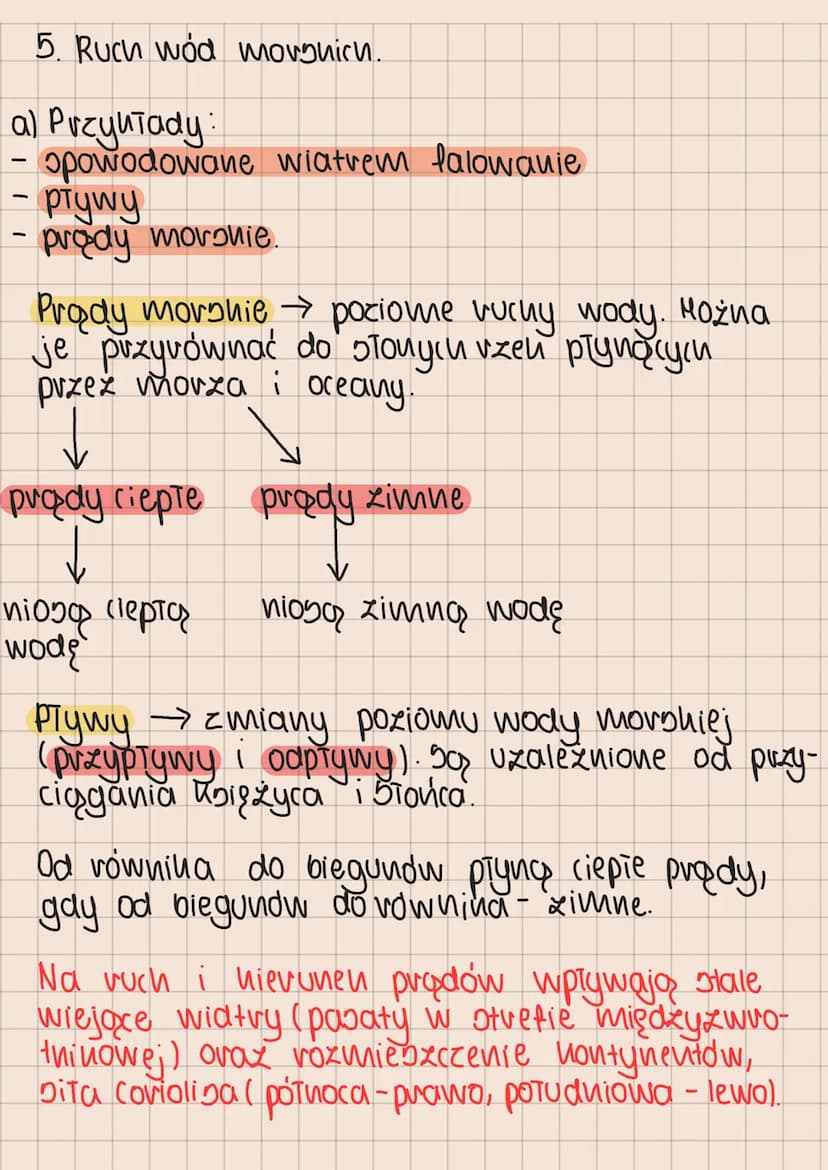 5. Ruch wód morskich.
a) Przykłady:
- spowodowane wiatrem falowanie
- pływy
- prądy morskie.
Prądy morskie → poziome ruchy wody. Można
je przyrównać do słonych rzek płynących
przez morza i oceany.
prądy ciepłe prądy zimne
niosą ciepłą niosą zimną wodę
wodę
Pływy → zmiany poziomu wody morskiej
(przypływy i odpływy). Są uzależnione od przy-
ciągania Księżyca i Słońca.
Od równika do biegunów płyną ciepłe prądy,
gdy od biegunów do równika - zimne.
Na ruch i kierunek prądów wpływają stale
wiejące wiatry (pasaty w strefie międzyzwro-
tnikowej) oraz rozmieszczenie kontynentów,
siła Coriolisa (północa - prawo, południowa - lewo).